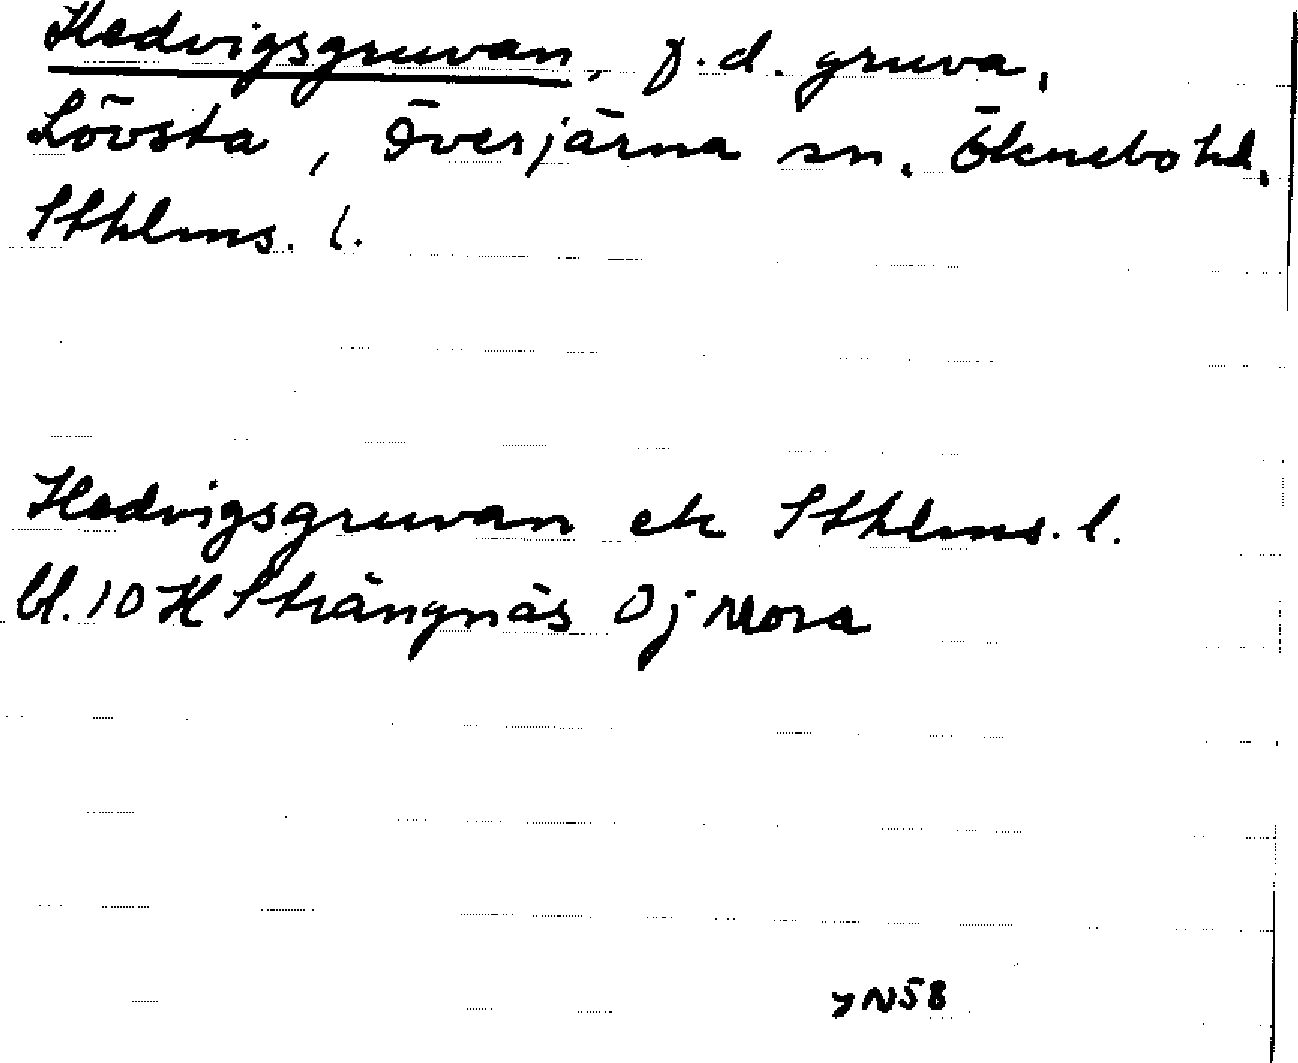 Hedvigsgruvan, f.d. gruva,
Lövsta, Överjärna sn. Öknebo hd,
Sthlms. l.
Hedvigsgruvan ek Sthlms. l.
bl. 10 H Strängnäs 0j Mora
YN58